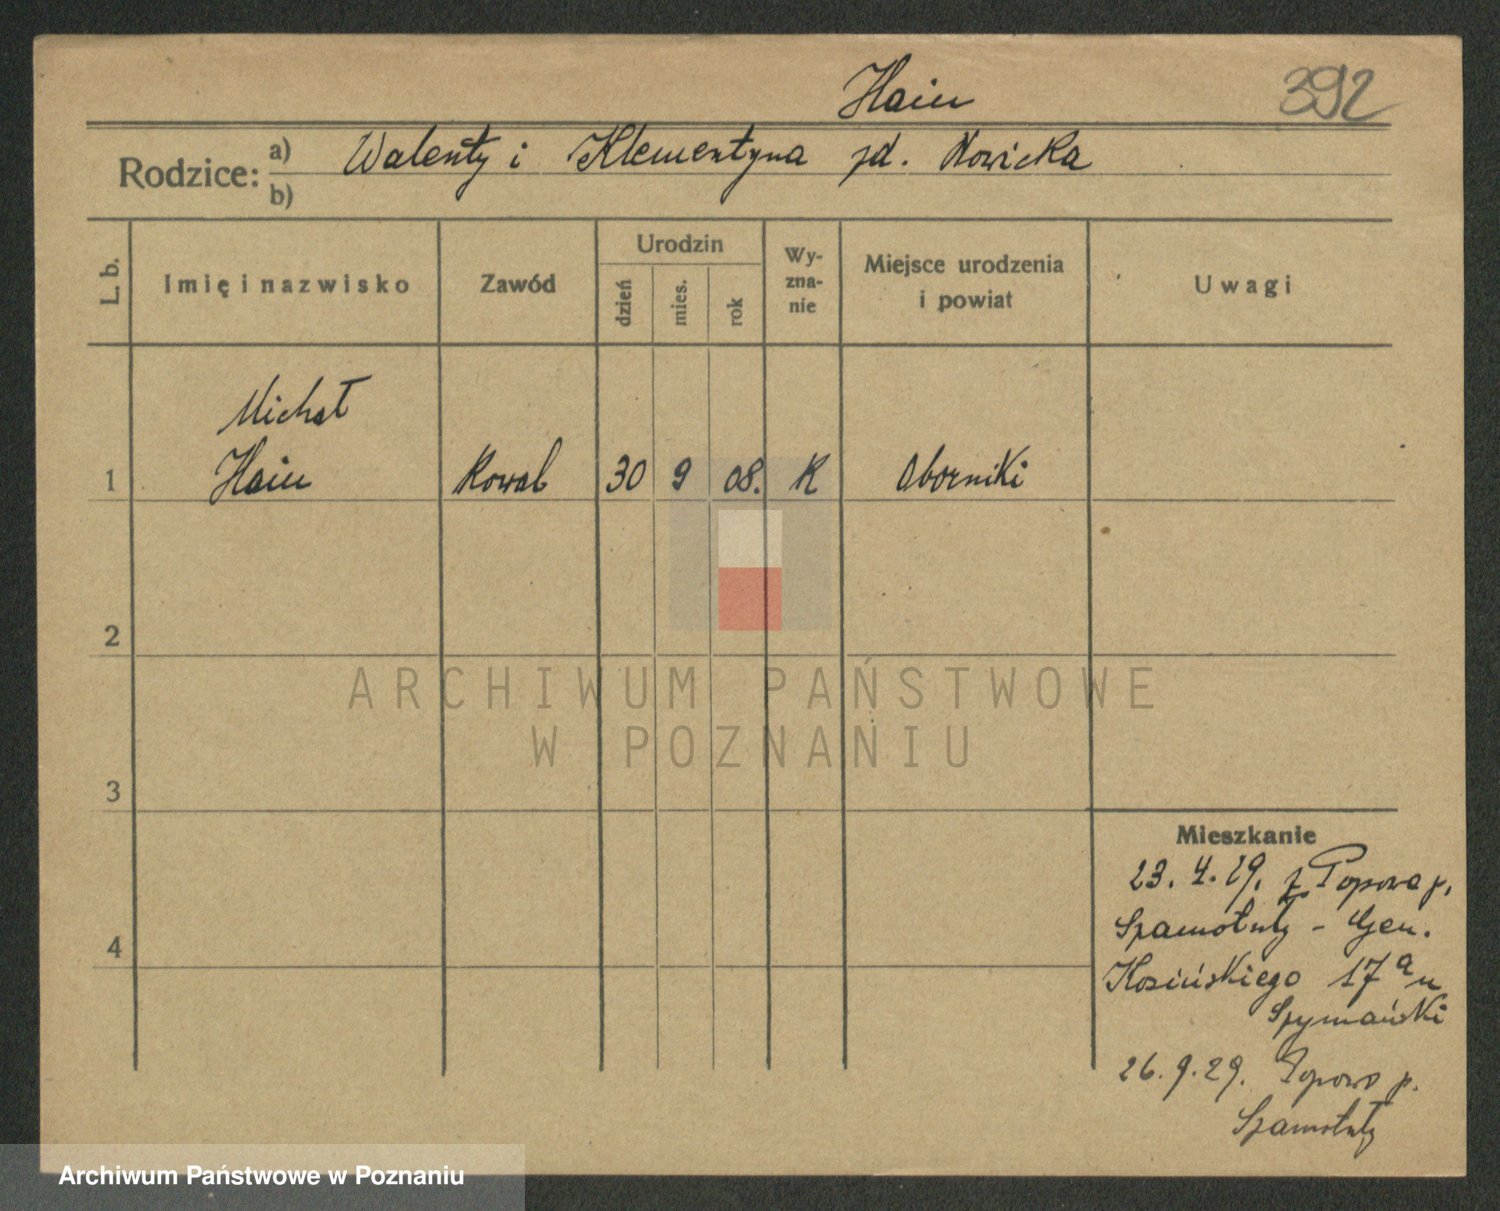 Hain
392
Rodzice: a) Walenty i Klementyna zd. Nowicka
b)
L. b.
Imię i nazwisko
Zawód
Urodzin
dzień
mies.
rok
Wy-
zna-
nie
Miejsce urodzenia
i powiat
Uwagi
Michał
1 Hain Kowal 30 9 08. K Oborniki
2
ARCHIWUM PAŃSTWOWE
W POZNANIU
3
Mieszkanie
23. 4. 29. z Popowa p.
4 Szamotuły - Gen.
Kosińskiego 17 a u
Szymański
26. 9. 29. Popowo p.
Szamotuły
Archiwum Państwowe w Poznaniu